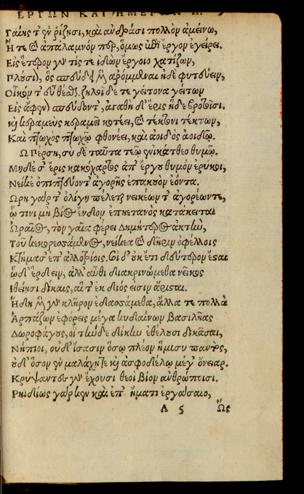 ΕΡΓΩΝ ΚΑΙ ΗΜΕΡ
Γαίης τ' ἐν ῥίζῃσι, καὶ ἀνδράσι πολλὸν ἀμείνω,
Ἥ τε καὶ ἀπάλαμνόν περ, ὅμως ἐπὶ ἔργον ἐγείρει.
Εἰς ἕτερον γάρ τίς τε ἰδὼν ἔργοιο χατίζων,
Πλούσιον, ὃς σπεύδει μὲν ἀρόμμεναι ἠδὲ φυτεύειν,
Οἶκόν τ' εὖ θέσθαι, ζηλοῖ δέ τε γείτονα γείτων
Εἰς ἄφενον σπεύδοντ', ἀγαθὴ δ' ἔρις ἥδε βροτοῖσι.
καὶ κεραμεὺς κεραμεῖ κοτέει, καὶ τέκτονι τέκτων,
Καὶ πτωχὸς πτωχῷ φθονέει, καὶ ἀοιδὸς ἀοιδῷ.
Ὦ Πέρση, σὺ δὲ ταῦτα τεῷ ἐνικάτθεο θυμῷ.
Μηδέ σ' ἔρις κακόχαρτος ἀπ' ἔργου θυμὸν ἐρύκοι,
Νείκε' ὀπιπτεύοντ' ἀγορῆς ἐπακουὸν ἐόντα.
Ὥρη γάρ τ' ὀλίγη πέλεται νεικέων τ' ἀγορέων τε,
ᾧ τινι μὴ βίος ἔνδον ἐπηετανὸς κατάκειται
Ὡραῖος, τὸν γαῖα φέρει Δημήτερος ἀκτὴν,
Τοῦ κεκορεσσάμενος, νείκεα καὶ δῆριν ὀφέλλοις
Κτήμασ' ἐπ' ἀλλοτρίοις. σοὶ δ' οὐκ ἔτι δεύτερον ἔσαι
ὧδ' ἔρδειν, ἀλλ' αὖθι διακρινώμεθα νεῖκος
Ἰθείῃσι δίκαις, αἵ τ' ἐκ διός εἰσιν ἄρισται.
Ἤδη μὲν γὰρ κλῆρον ἐδασσάμεθα, ἄλλα τε πολλὰ
Ἁρπάζων ἐφόρεις μέγα κυδαίνων Βασιλῆας
Δωροφάγους, οἳ τήνδε δίκην ἐθέλουσι δικάσαι,
Νήπιοι, οὐδ' ἴσασιν ὅσῳ πλέον ἥμισυ παντὸς,
οὐδ' ὅσον ἐν μαλάχῃ τε καὶ ἀσφοδέλῳ μέγ' ὄνειαρ.
Κρύψαντες γὰρ ἔχουσι θεοὶ βίον ἀνθρώποισι.
Ῥηϊδίως γάρ κεν καὶ ἐπ' ἤματι ἐργάσσαιο,
Α 5 Ὥς